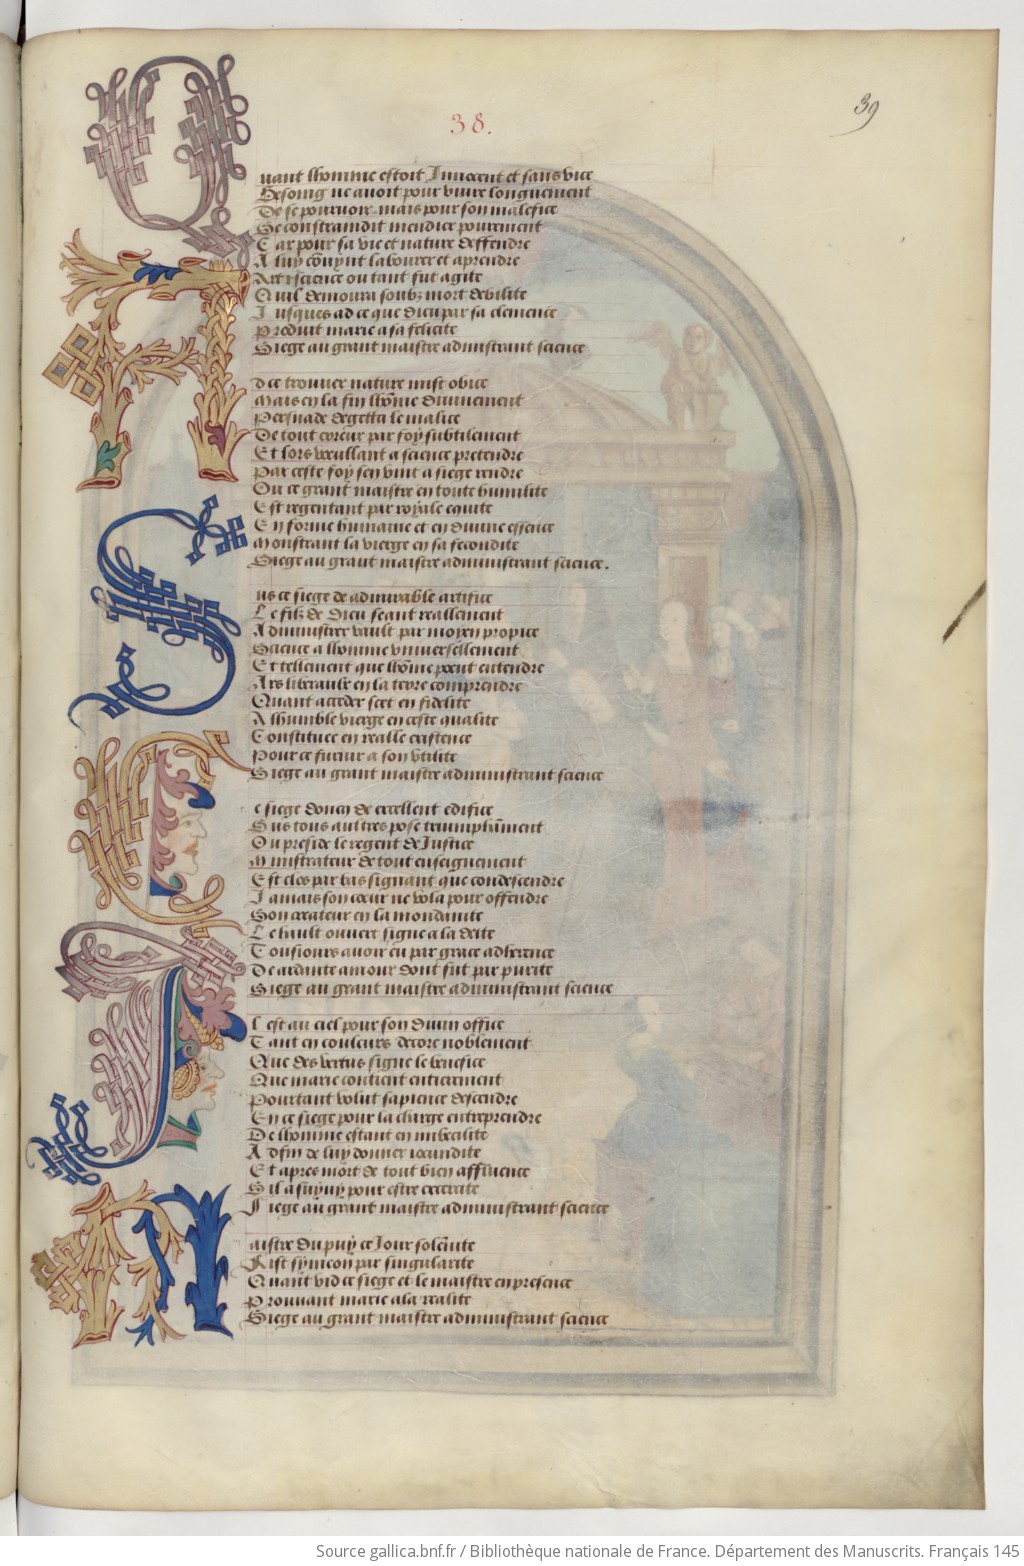 38.
39
Quant lhomme estoit Innocent et sans vice
Besoing ne auoit pour viure longuement
De se pouruoir. mais pour son malefice
Se constraindit mendier pourement
Car pour sa vie et nature deffendre
A luy cōuynt labourer et aprendre
Art & science ou tant fut agite
Quil demoura soubz mort debilite
Jusques ad ce que dieu par sa clemence
Produit marie a sa felicite
Siege au grant maistre admistrant science
A dce trouuer nature mist obice
Mais en la fin lhōme diuinement
Persuade degetta le malice
De tout erreur par foy subtilement
Et lors veullant a science pretendre
Par ceste foy sen vint a siege rendre
Ou ce grant maistre en toute humilite
Est regentant par royale equite
En forme humaine et en diuine essence
Monstrant la vierge en sa fecondite
Siege au grant maistre administrant science.
Sus ce siege de admirable artifice
Le filz de dieu seant reallement
Administrer vault par moyen propice
Science a lhomme vniuersellement
Et tellement que lhōme peut entendre
Ars liberaulx en la terre comprendre
Quant acceder scet en fidelite
A lhumble vierge en ceste qualite
Constituee en realle existence
Pour ce futur a son vtilite
Siege au grant maistre administrant science
Ce siege doncq de excellent edifice
Sus tous aultres pose triumphāment
Ou preside le regent de Justice
Ministrateur de tout enseignement
Est clos par bas signant que condescendre
Jamais son cœur ne vola pour offendre
Son createur en la mondanite
Le hault ouuert signe a la deite
Tousiours auoir eu par grace adherence
De ardante amour dont fut par purite
Siege au grant maistre administrant science
Il est au ciel pour son diuin office
Tant en couleurs decore noblement
Que des vertus signe le benefice
Que marie contient entierement
Pourtant volut sapience descendre
En ce siege pour la charge entreprendre
De lhomme estant en imbecilite
Adfin de luy donner iocundite
Et apres mort de tout bien affluence
Sil a suyuy pour estre exercite
Siege au grant maistre administrant science
Maistre du puy ce Jour solēnite
Fist symeon par singularite
Quant vid ce siege et le maistre en presence
Prouuant marie a la realite
Siege au grant maistre administrant science
Source gallica.bnf.fr / Bibliothèque nationale de France. Département des Manuscrits. Français 145